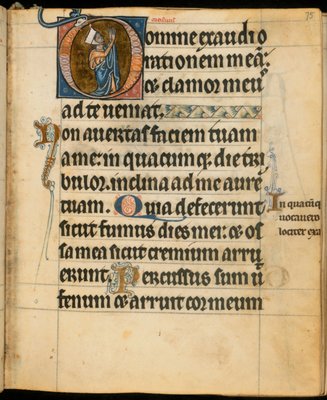 75
Domine exaudi o
rationem meā:
⁊ clamor meu
ad te veniat.
Non avertas faciem tuam
a me: in quacumq; die tri
bulor. inclina ad me aurē
tuam. Quia defecerunt
sicut fumus dies mei: ⁊ os
sa mea sicut cremium arru
erunt. Percussus sum ut
fenum ⁊ arruit cor meum
In quacūq
vocavero